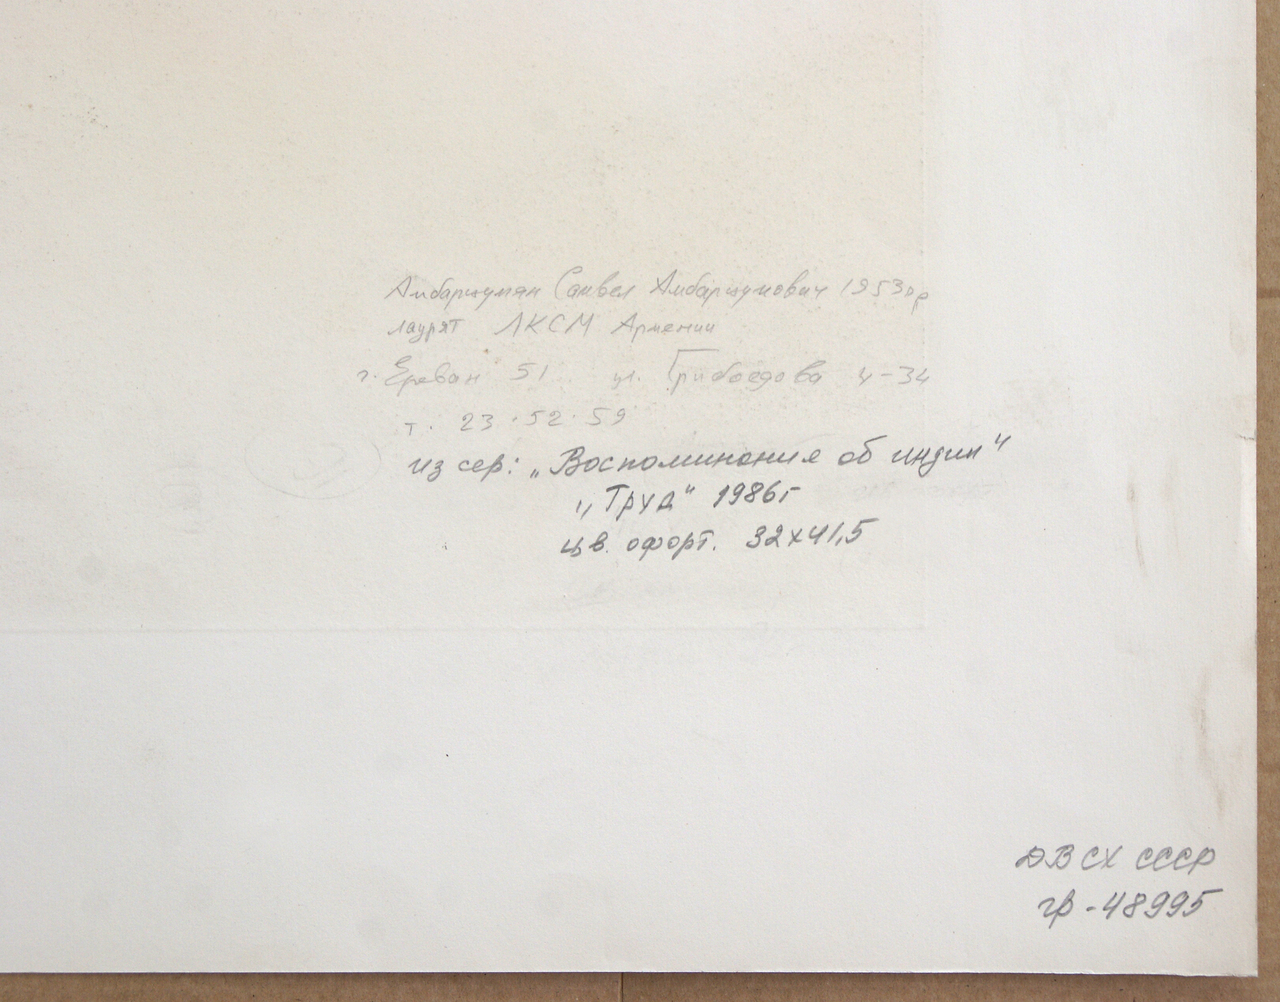 Амбарцумян Самвел Амбарцумович 1953 г р
лаурят ЛКСМ Армении
г. Ереван 51 ул. Грибоедова 4-34
т. 23.52.59
из сер: „Воспоминания об индии"
„Труд" 1986г
цв. офорт. 32х41,5
ДВ СХ СССР
гр-48995